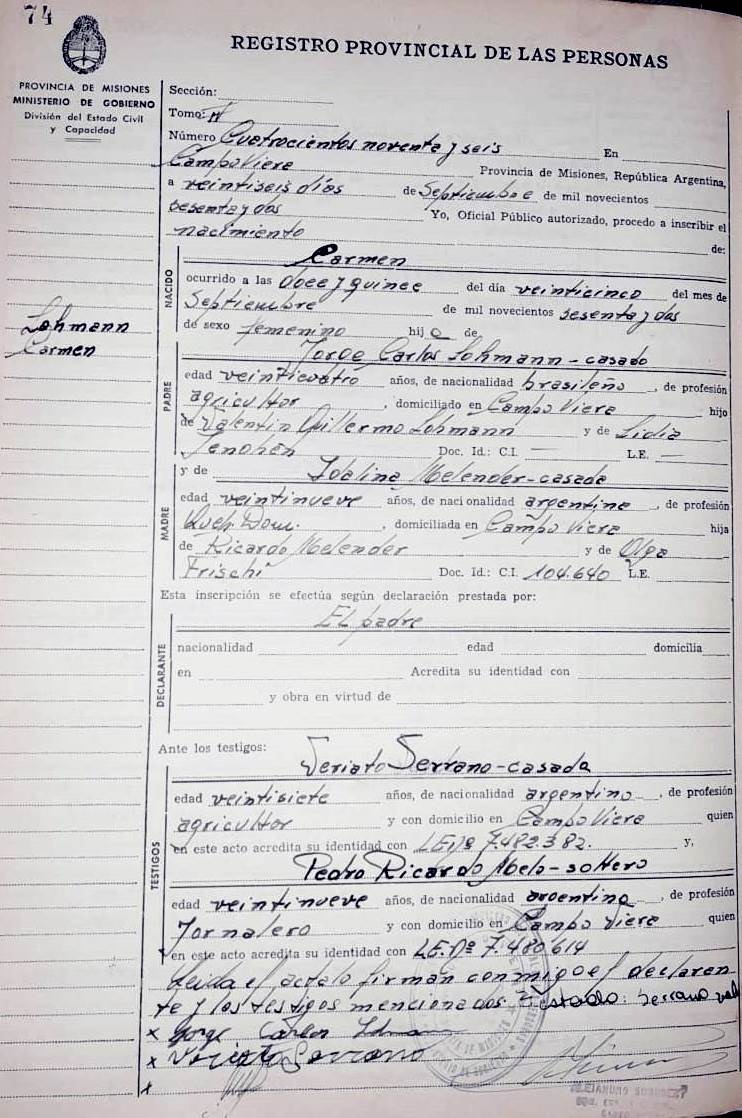 74
REGISTRO PROVINCIAL DE LAS PERSONAS
PROVINCIA DE MISIONES
MINISTERIO DE GOBIERNO
División del Estado Civil
y Capacidad
Lohmann
Carmen
Sección:
Tomo: II
Número Cuatrocientos noventa y seis En
Campo Viera Provincia de Misiones, República Argentina,
a veintiseis días de Septiembre de mil novecientos
sesenta y dos Yo, Oficial Público autorizado, procedo a inscribir el
nacimiento de:
NACIDO
Carmen
ocurrido a las doce y quince del día veinticinco del mes de
Septiembre de mil novecientos sesenta y dos
de sexo femenino hija de
PADRE
Jorge Carlos Lohmann - casado
edad veinticuatro años, de nacionalidad brasileño, de profesión
agricultor, domiciliado en Campo Viera hijo
de Valentin Guillermo Lohmann y de Lidia
Doc. Id.: C.I. — L.E. —
y de Idalina Melender - casada
MADRE
edad veintinueve años, de nacionalidad argentina, de profesión
Queh. Dom., domiciliada en Campo Viera hija
de Ricardo Melender y de Olga
Frischi Doc. Id.: C.I. 104.640 L.E.
Esta inscripción se efectúa según declaración prestada por:
DECLARANTE
El padre
nacionalidad edad domicilia
en Acredita su identidad con
y obra en virtud de
Ante los testigos:
TESTIGOS
Veriato Serrano - casada
edad veintisiete años, de nacionalidad argentino, de profesión
agricultor y con domicilio en Campo Viera quien
en este acto acredita su identidad con LE.Nº 7.482.382. y,
Pedro Ricardo Melo - soltero
edad veintinueve años, de nacionalidad argentino, de profesión
Jornalero y con domicilio en Campo Viera quien
en este acto acredita su identidad con LE.Nº 7.480.614
Leida el acta lo firman conmigo el declaran-
te y los testigos mencionados. Testado: Serrano vale
x Jorge Carlos
x Veriato Serrano
x